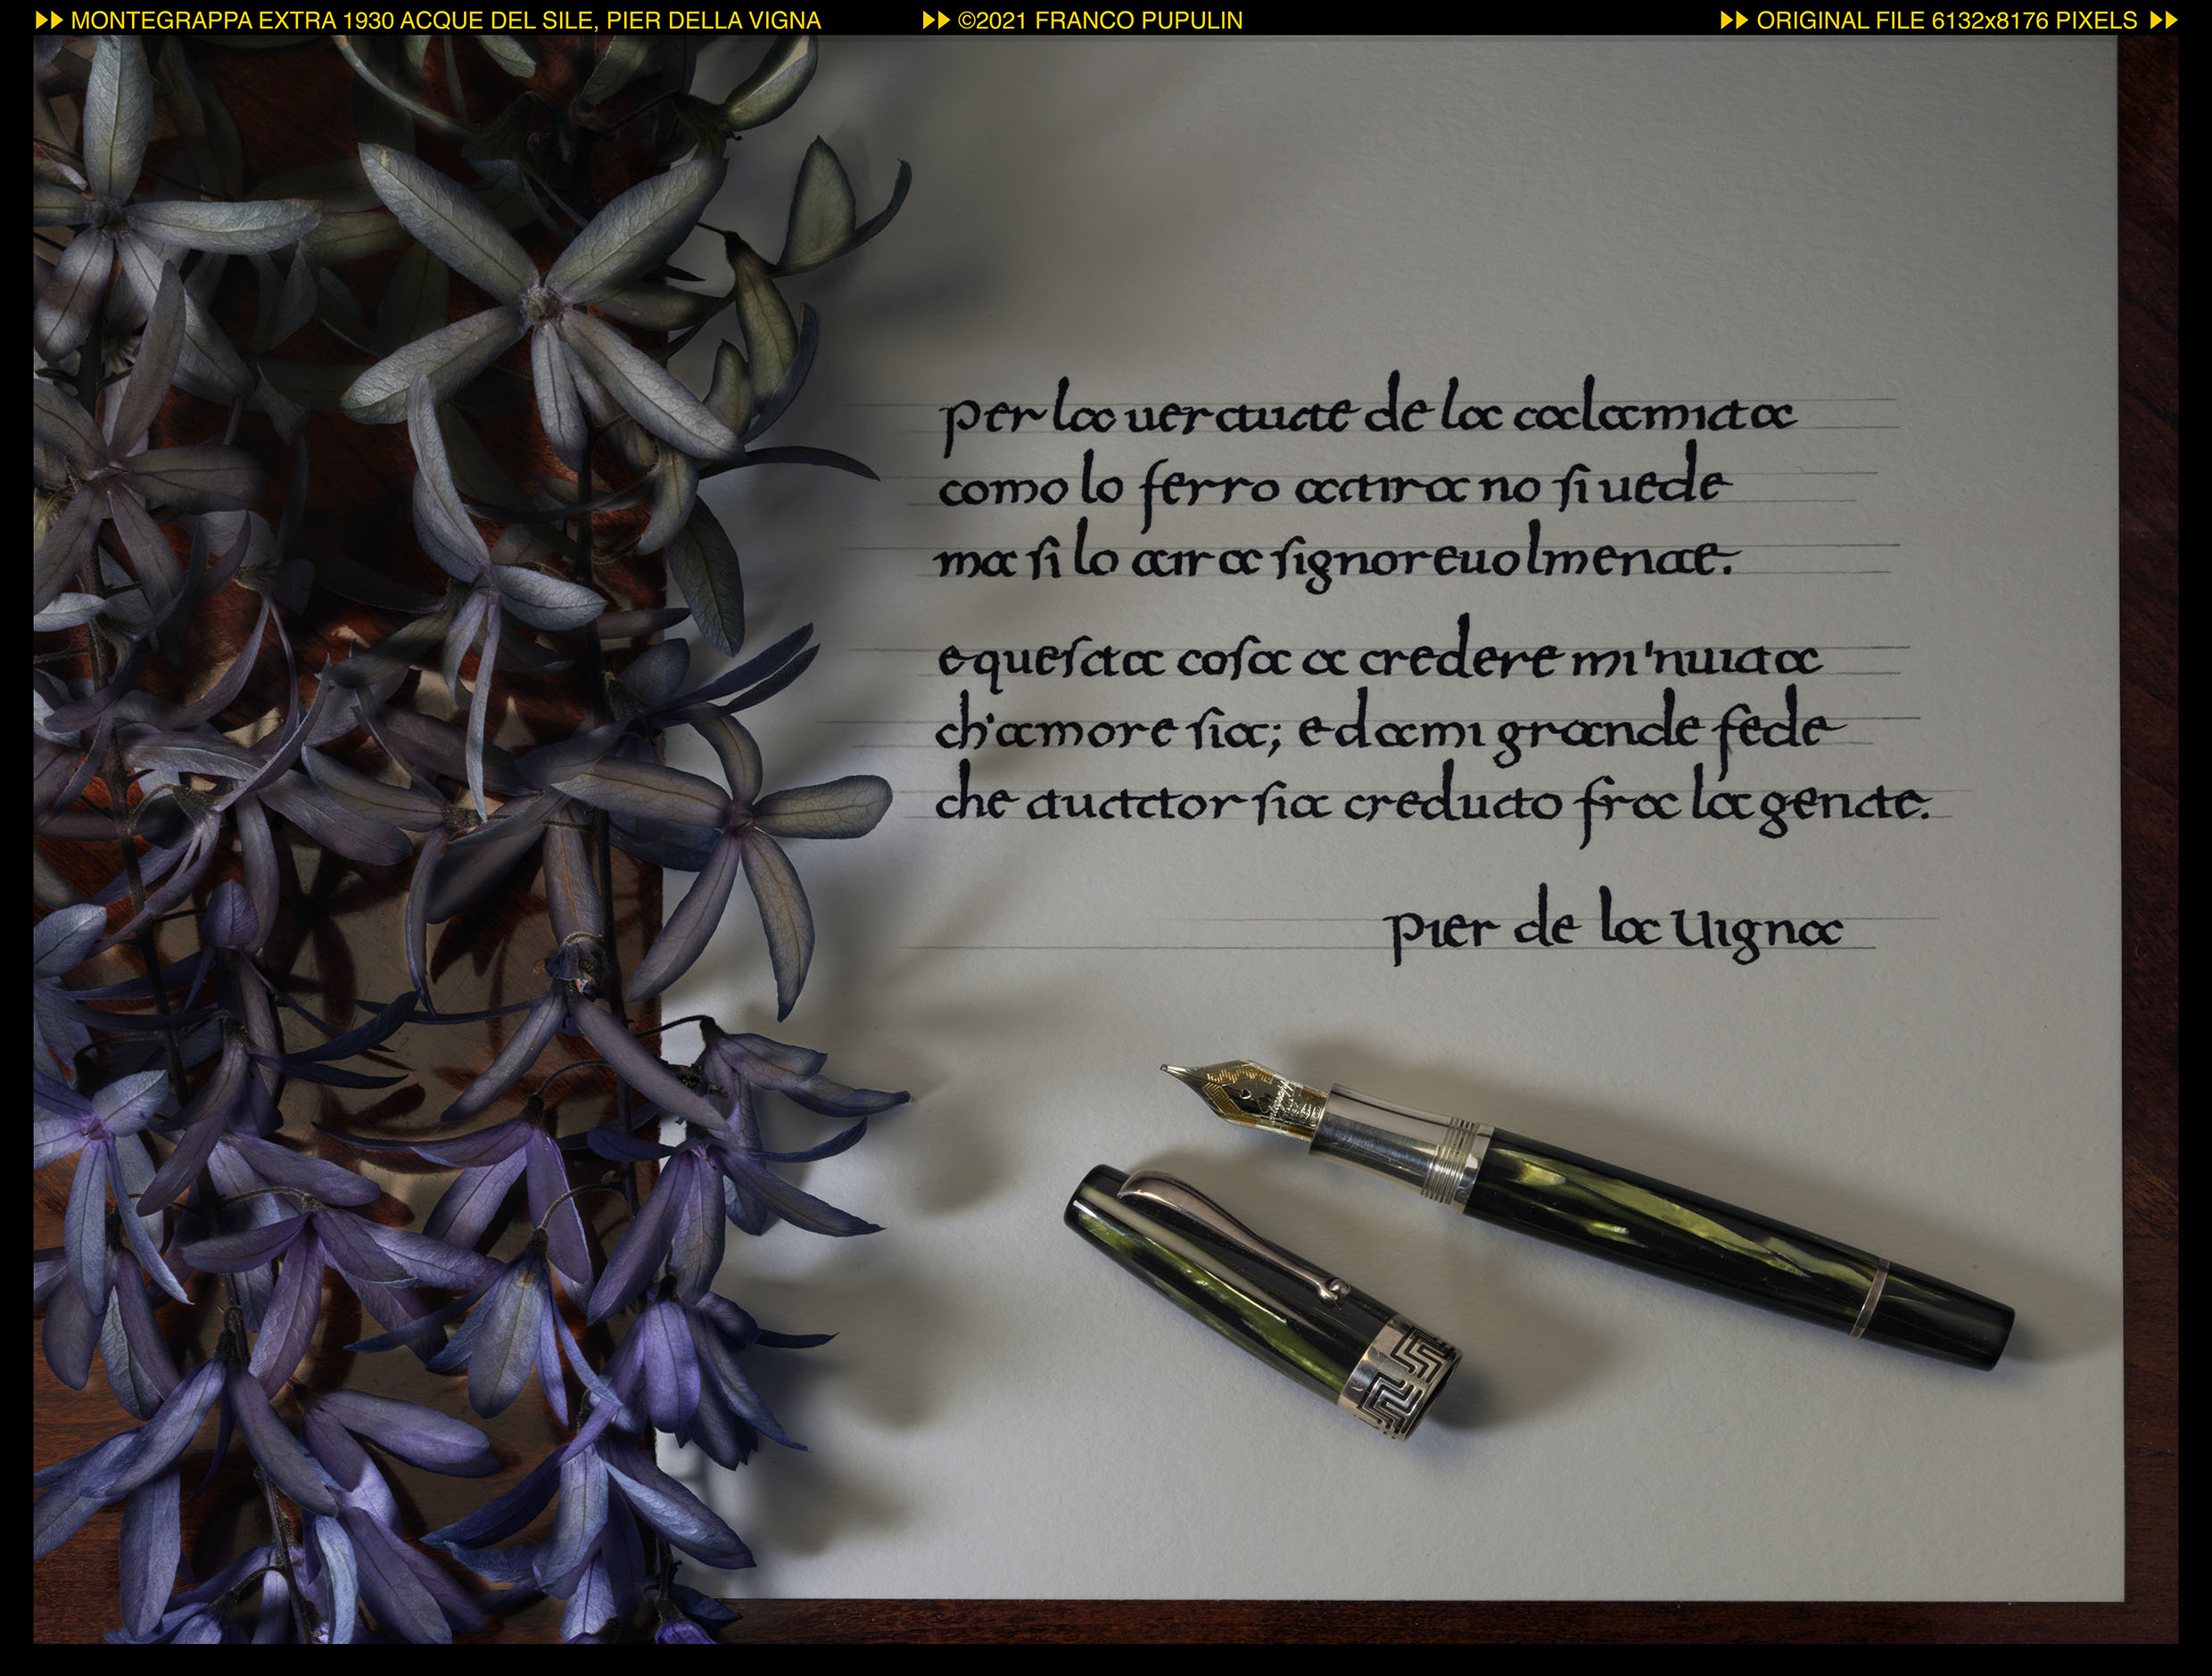 MONTEGRAPPA EXTRA 1930 ACQUE DEL SILE, PIER DELLA VIGNA
©2021 FRANCO PUPULIN
ORIGINAL FILE 6132x8176 PIXELS
per la uertute de la calamita
como lo ferro atira no si uede
ma si lo tira signoreuolmente.
e questa cosa a credere mi 'nuita
ch'amore sia; e dami grande fede
che tuttor sia creduto fra la gente.
pier de la Uigna